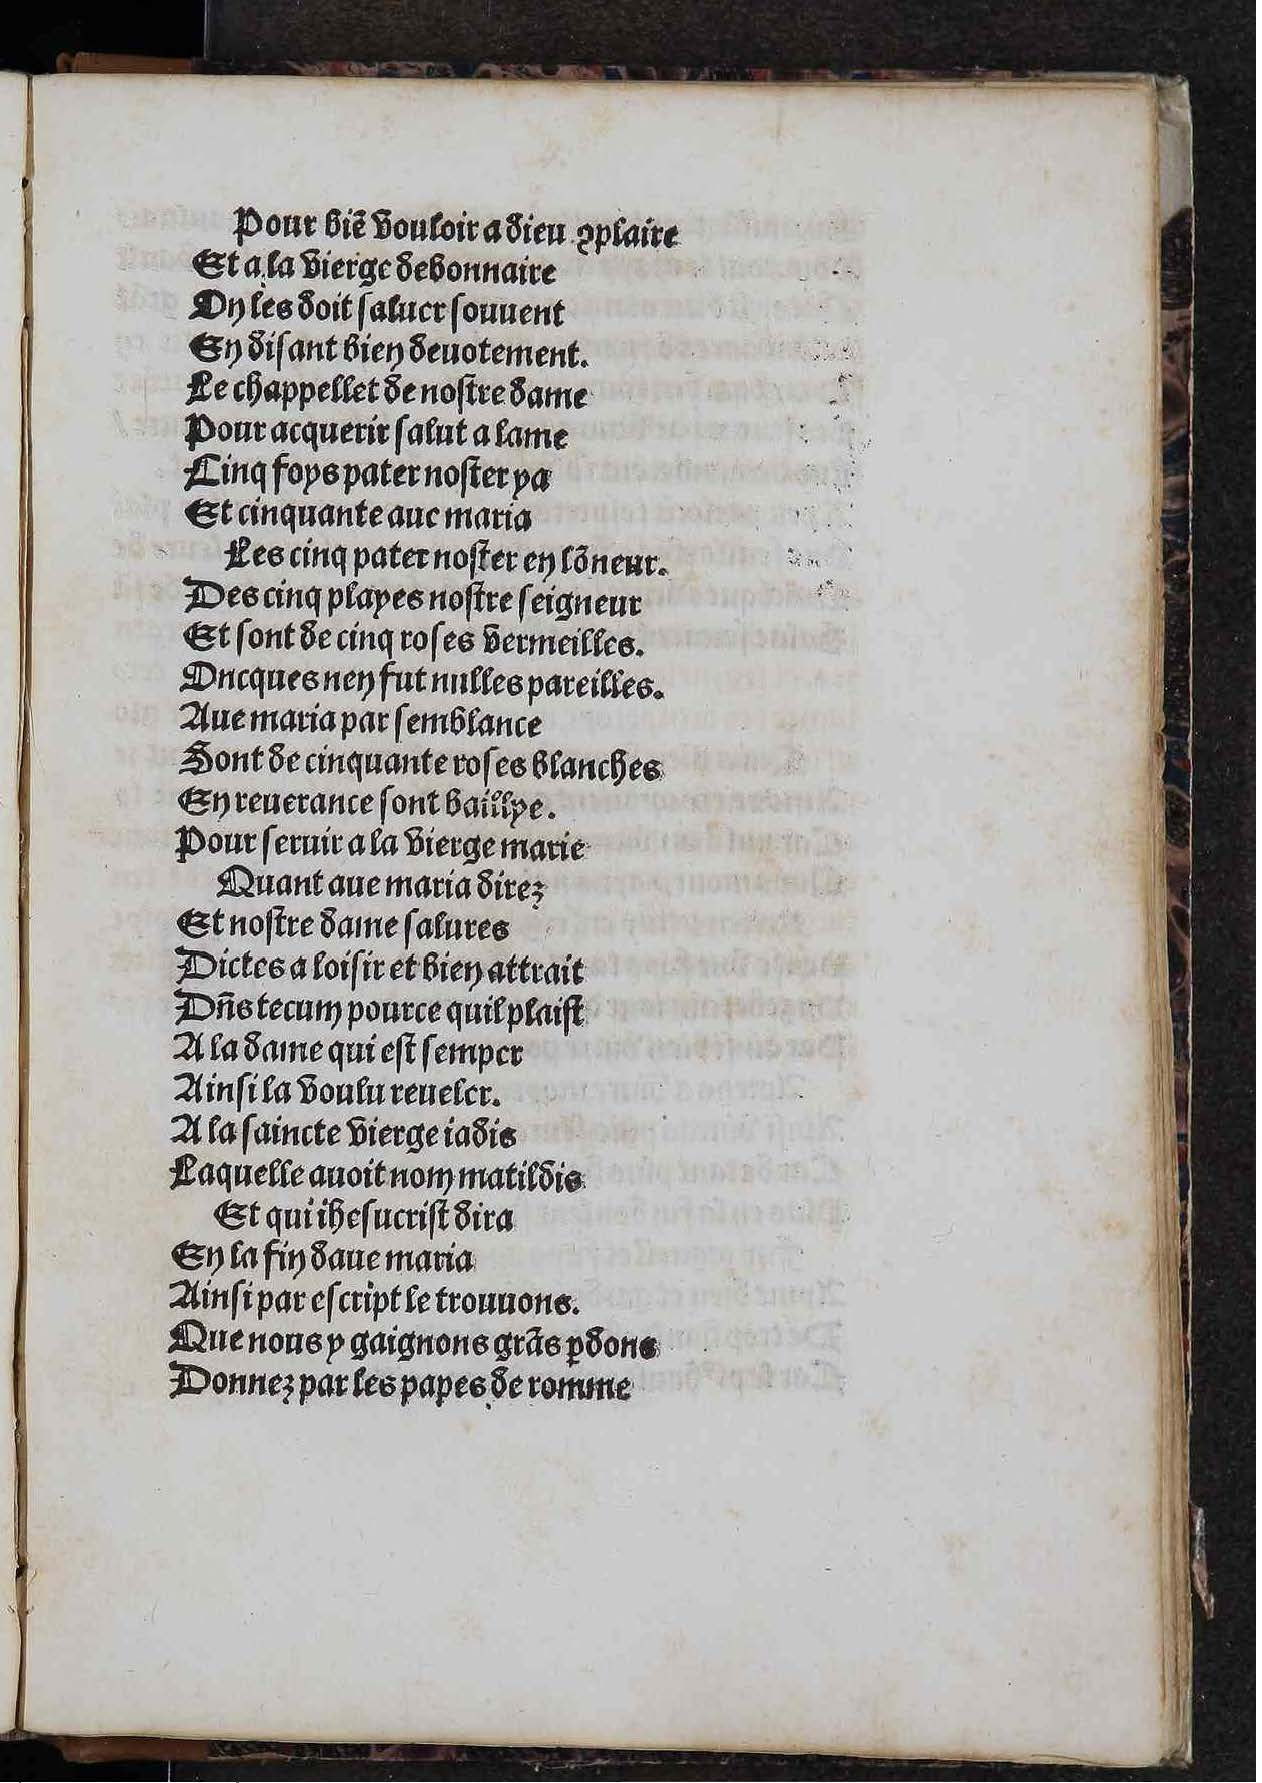 Pour biẽ vouloir a dieu ꝯplaire
Et a la vierge debonnaire
On les doit saluer souuent
En disant bien deuotement.
Le chappellet de nostre dame
Pour acquerir salut a lame
Cinq foys pater noster ya
Et cinquante aue maria
Les cinq pater noster en lõneur.
Des cinq playes nostre seigneur
Et sont de cinq roses vermeilles.
Oncques nen fut nulles pareilles.
Aue maria par semblance
Sont de cinquante roses blanches
En reuerance sont baillye.
Pour seruir a la vierge marie
Quant aue maria direz
Et nostre dame salures
Dictes a loisir et bien attrait
Dn̄s tecum pource quil plaist
A la dame qui est semper
Ainsi la voulu reueler.
A la saincte vierge iadis
Laquelle auoit nom matildis
Et qui ihesucrist dira
En la fin daue maria
Ainsi par escript le trouuons.
Que nous y gaignons grãs ꝑdons
Donnez par les papes de romme